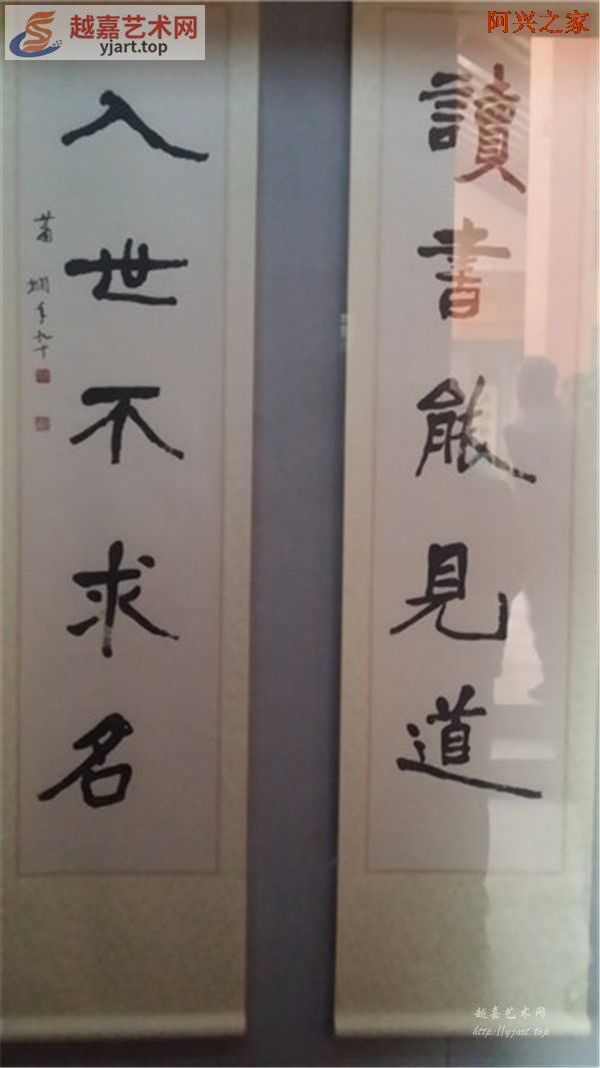 越嘉艺术网
yjart.top
阿兴之家
讀書能見道
入世不求名
蕭嫻年九十
越嘉艺术网
http://yjart.top